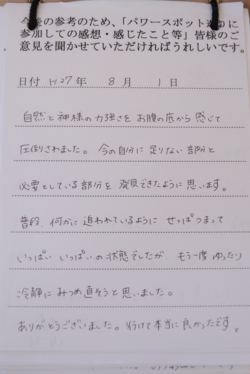 今後の参考のため、「パワースポット巡りに
参加しての感想・感じたこと等」皆様のご
意見を聞かせていただければうれしいです。
日付 H27年 8月 1日
自然と神様の力強さをお腹の底から感じて
圧倒されました。今の自分に足りない部分と
必要としている部分を発見できたように思います。
普段、何かに追われているように せっぱつまって
いっぱい いっぱいの状態でしたが もう一度 ゆったり
冷静に みつめ直そうと思いました。
ありがとうございました。行けて本当に良かったです。